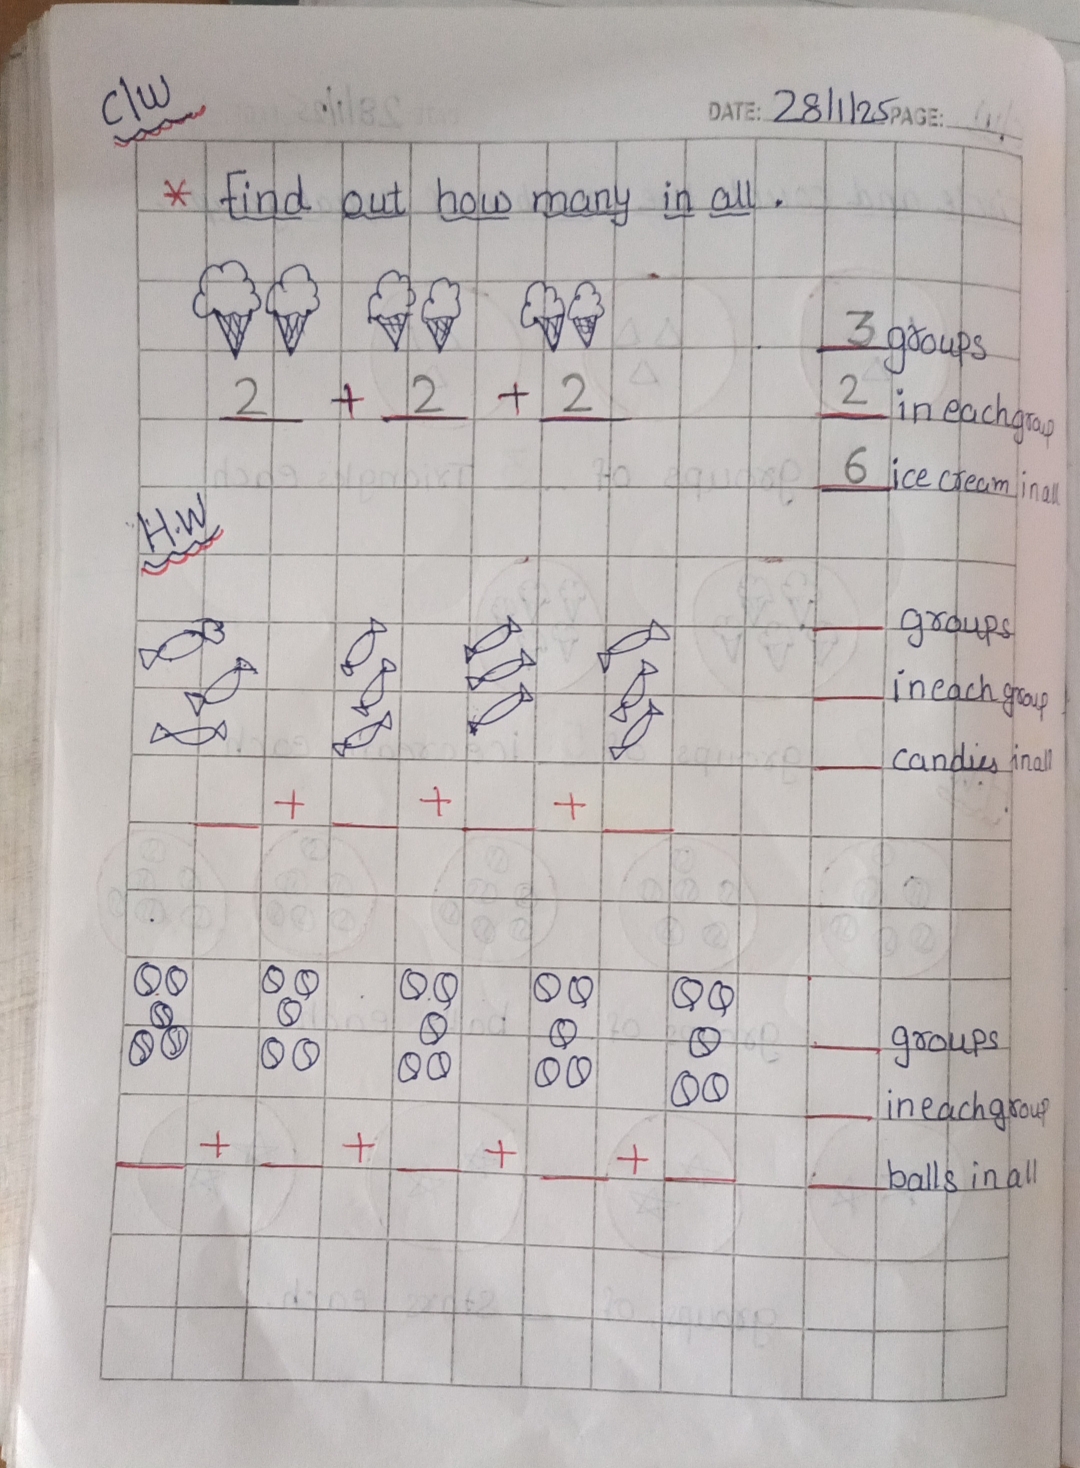 C/W
DATE: 28/1/25 PAGE:
* find out how many in all.
3 groups
2 + 2 + 2
2 in each group
6 ice cream in all
H.W
groups
in each group
candies in all
+ + +
groups
in each group
+ + + +
balls in all